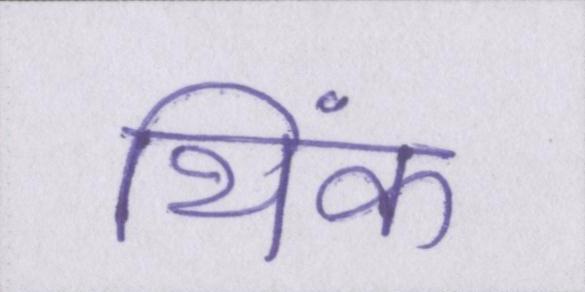 थिंक